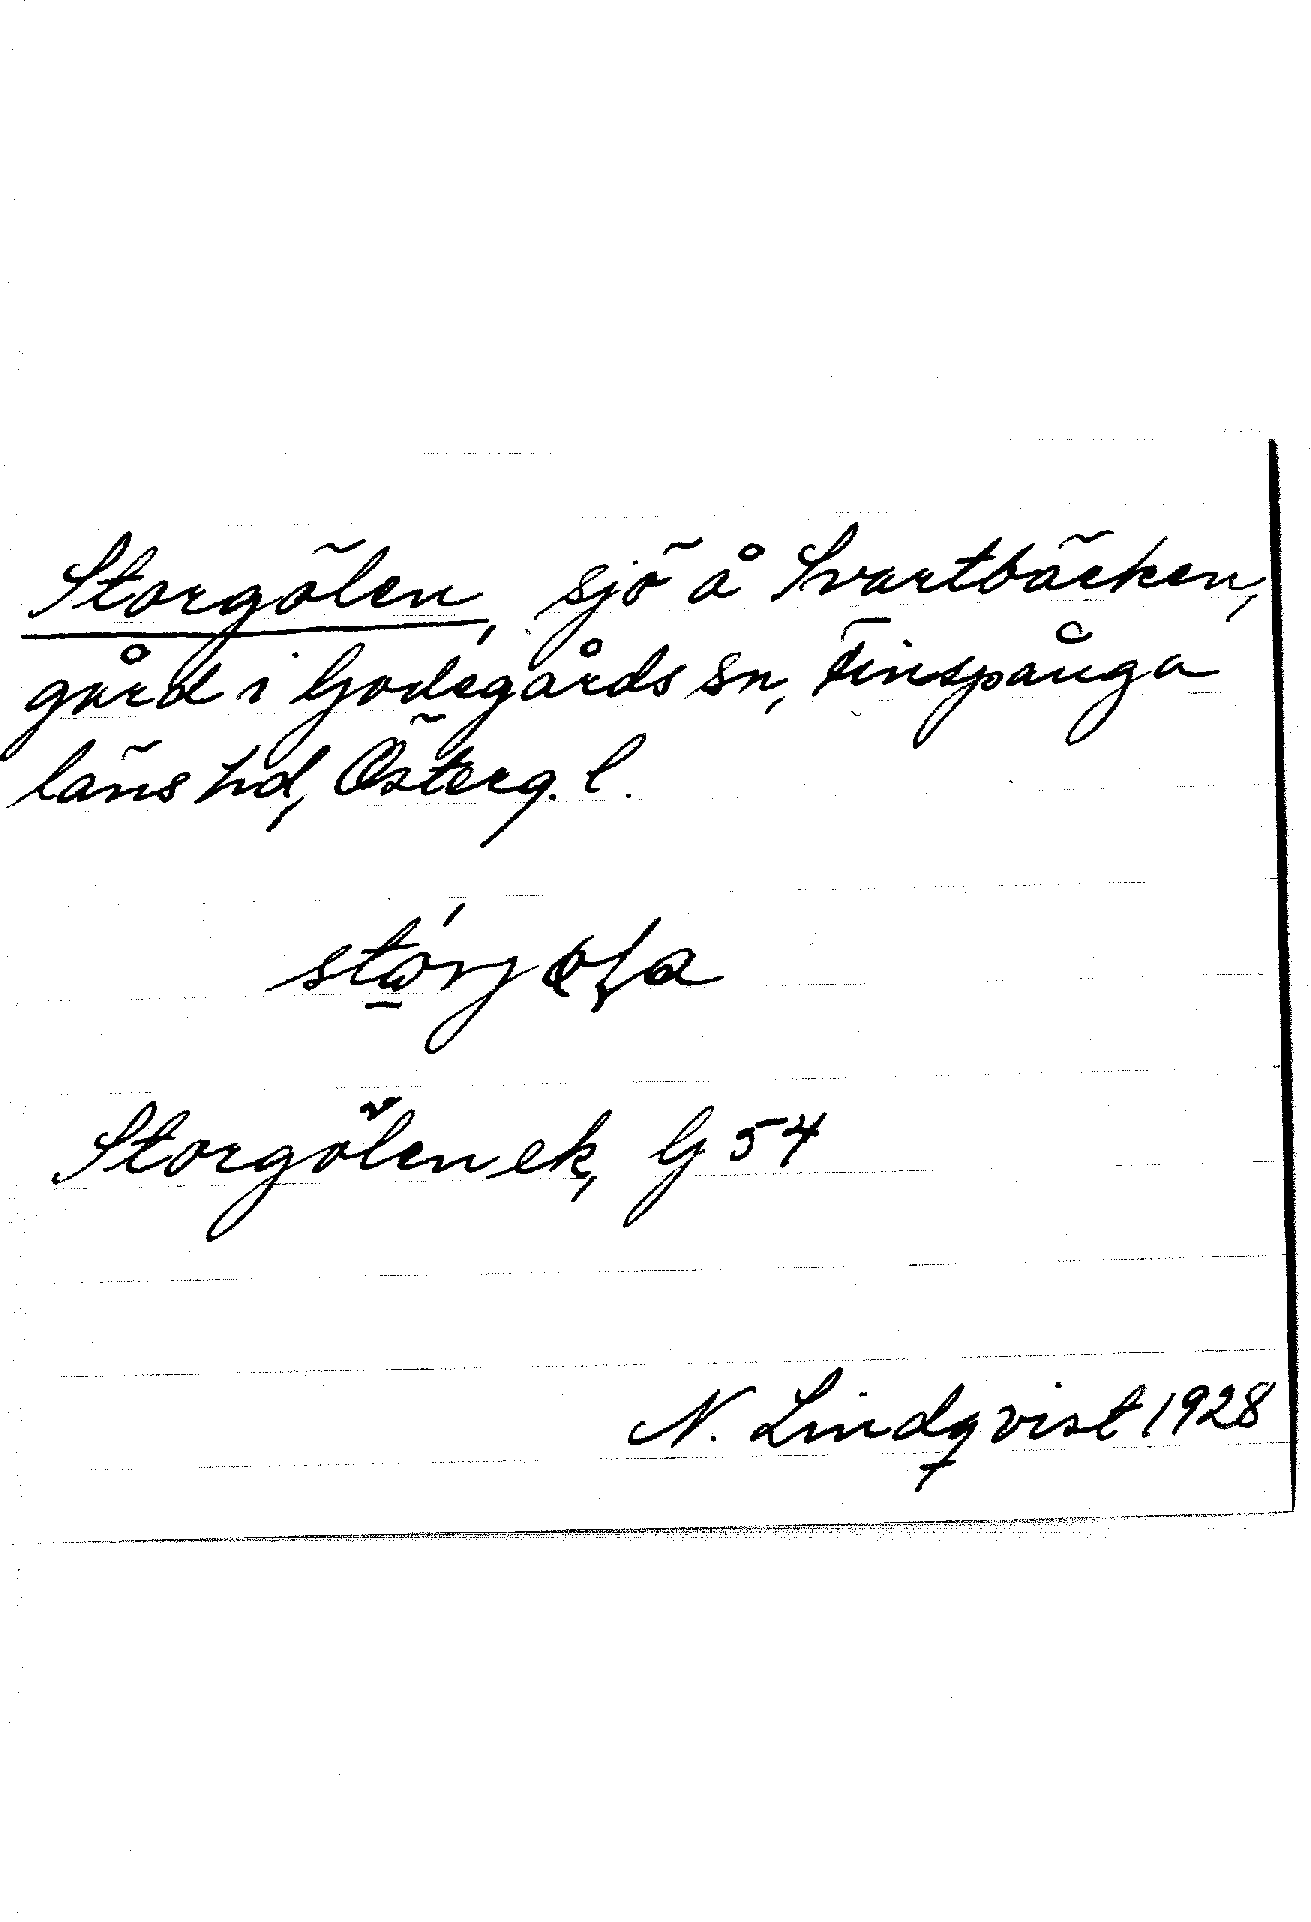 Storgölen, sjö å Svartbäcken,
gård i Godegårds sn, Finspånga
läns hd, Österg. l.
Storgölen ek, G 54
N. Lindqvist 1928